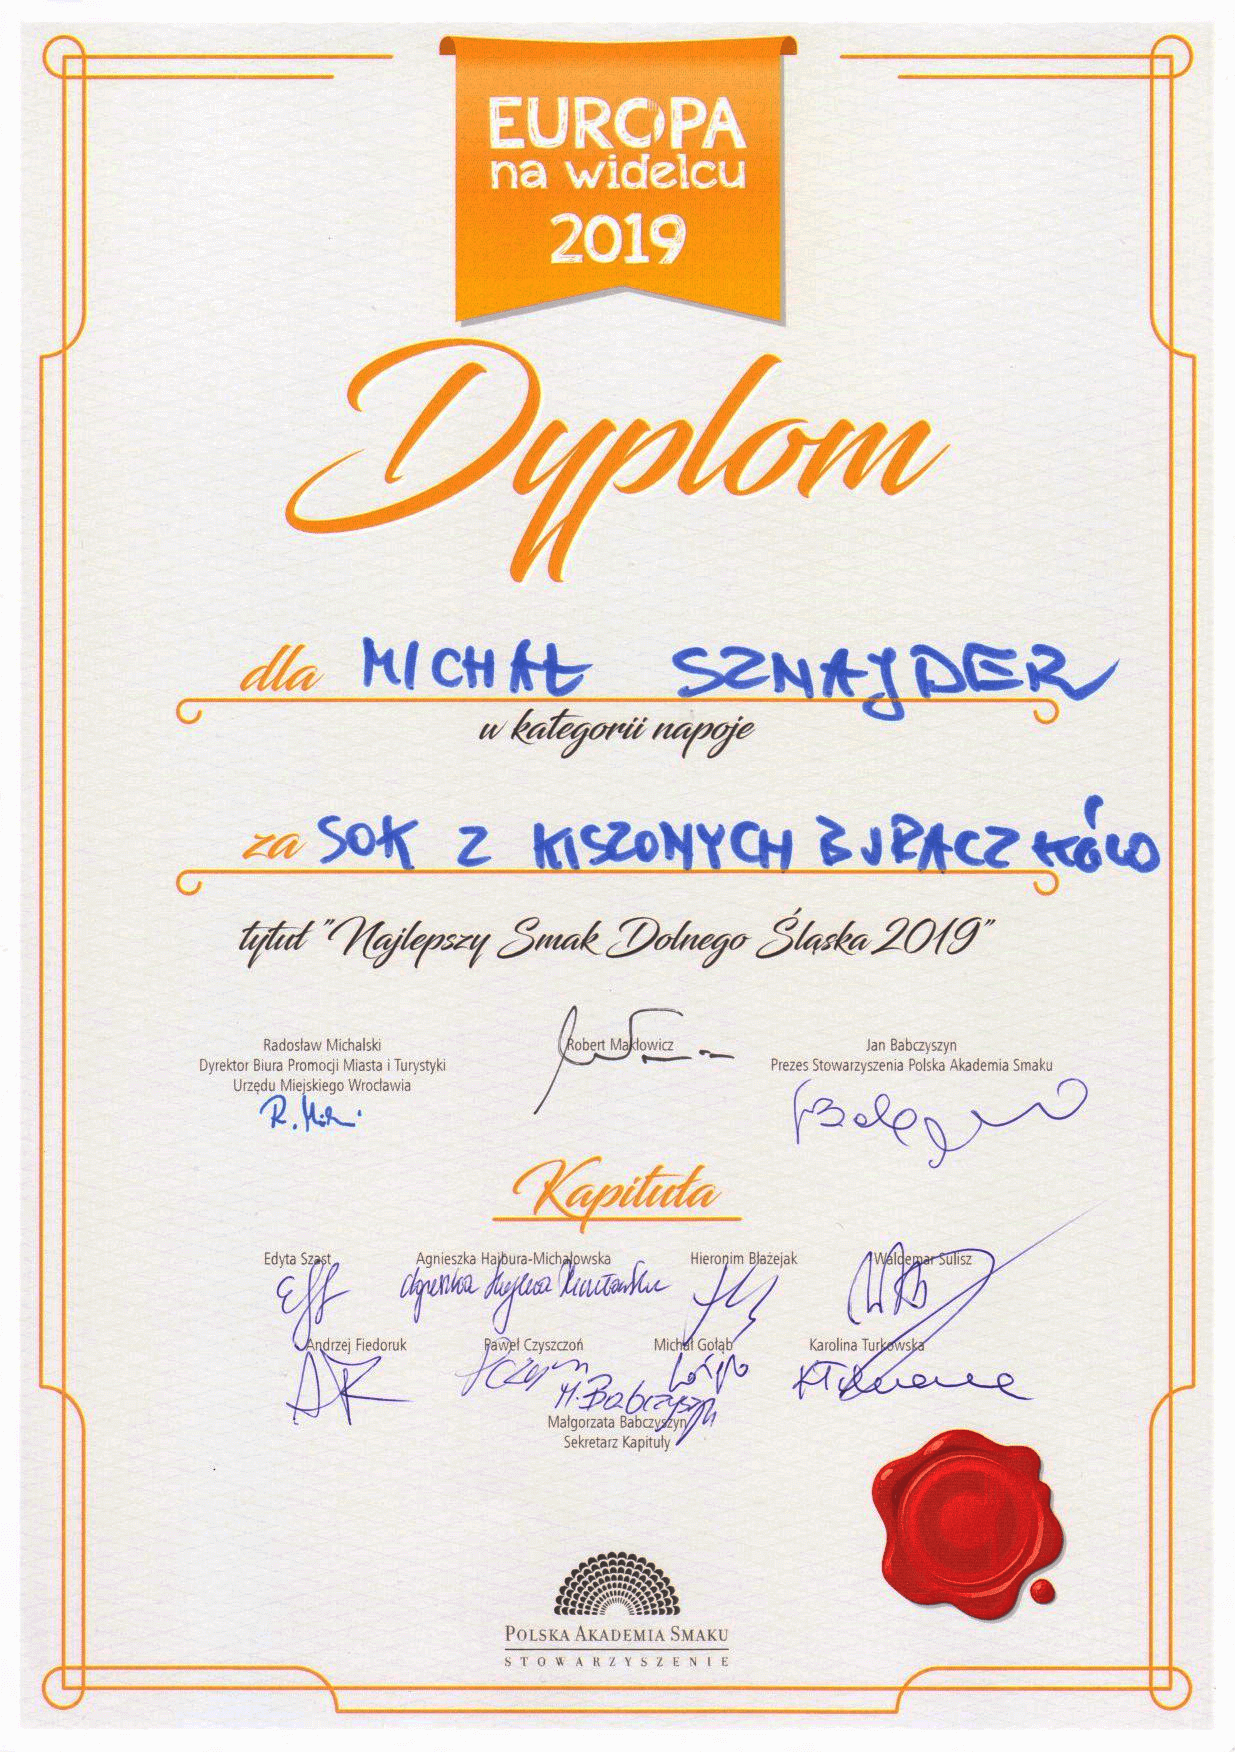 EUROPA
na widelcu
2019
Dyplom
dla MICHAŁ SZNAJDER
w kategorii napoje
za SOK Z KISZONYCH BURACZKÓW
tytuł "Najlepszy Smak Dolnego Śląska 2019"
Radosław Michalski
Dyrektor Biura Promocji Miasta i Turystyki
Urzędu Miejskiego Wrocławia
Robert Makłowicz
Jan Babczyszyn
Prezes Stowarzyszenia Polska Akademia Smaku
Kapituła
Edyta Szast Agnieszka Hajbura-Michałowska Hieronim Błażejak Waldemar Sulisz
Andrzej Fiedoruk Paweł Czyszczoń Michał Gołąb Karolina Turkowska
M. Babczyszyn
Małgorzata Babczyszyn
Sekretarz Kapituły
POLSKA AKADEMIA SMAKU
STOWARZYSZENIE